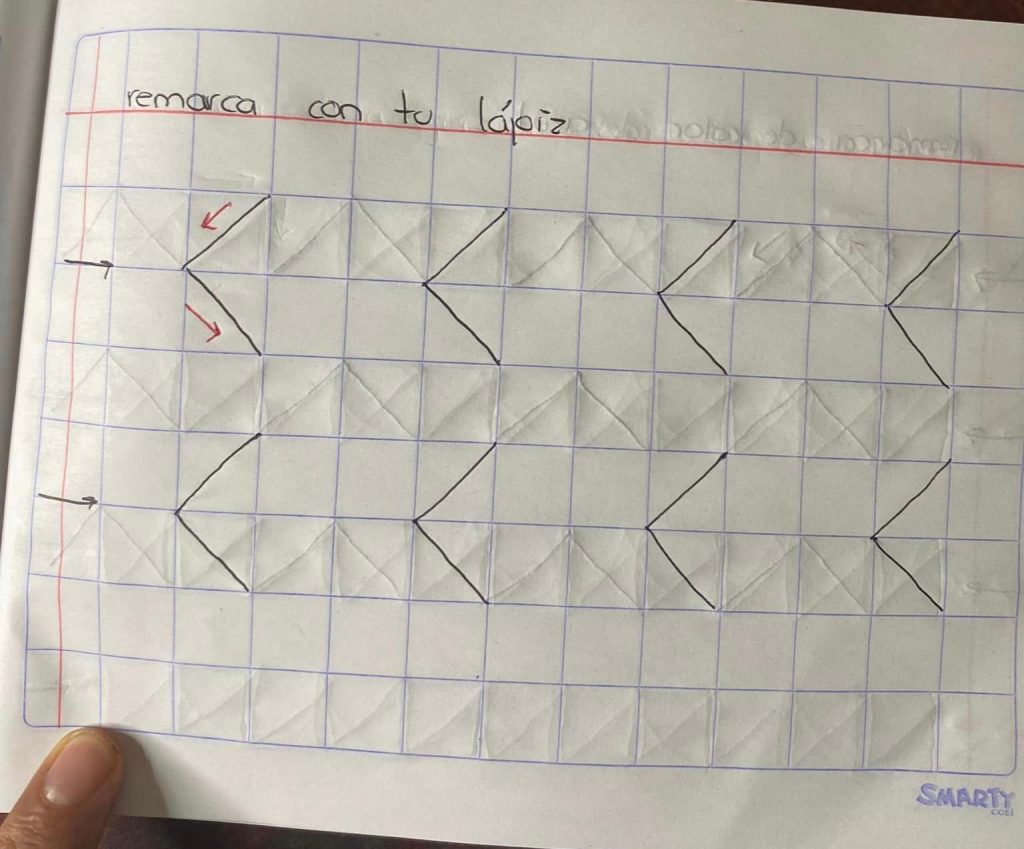 remarca con tu lápiz
SMARTY